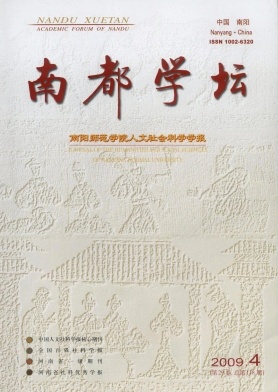 NANDU XUETAN
ACADEMIC FORUM OF NANDU
中国 南阳
Nanyang·China
ISSN 1002-6320
南都学坛
南阳师范学院人文社会科学学报
中国人文社科学报核心期刊
全国百强社科学报
河南省一级期刊
2009.4